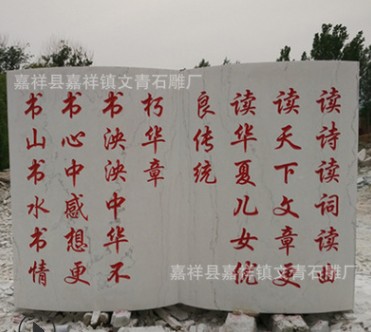 嘉祥县嘉祥镇文青石雕厂
读诗读词读曲
读天下文章更
读华夏儿女优
良传统
书山书水书情
书心中感想更
书泱泱中华不
朽华章
嘉祥县嘉祥镇文青石雕厂